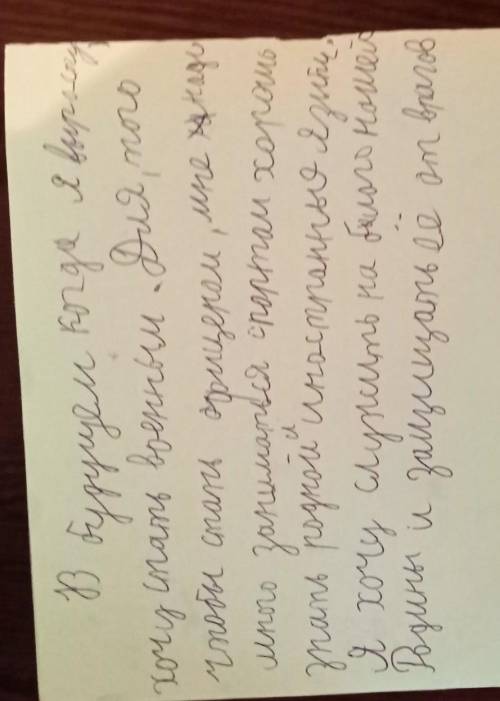 В будущем когда я вырасту
хочу стать военным. Для, того
чтобы стать офицером, мне надо
много заниматься спортом хорошо
знать родной и иностранные язики.
Я хочу служить на благо нашей
Родины и защищать её от врагов